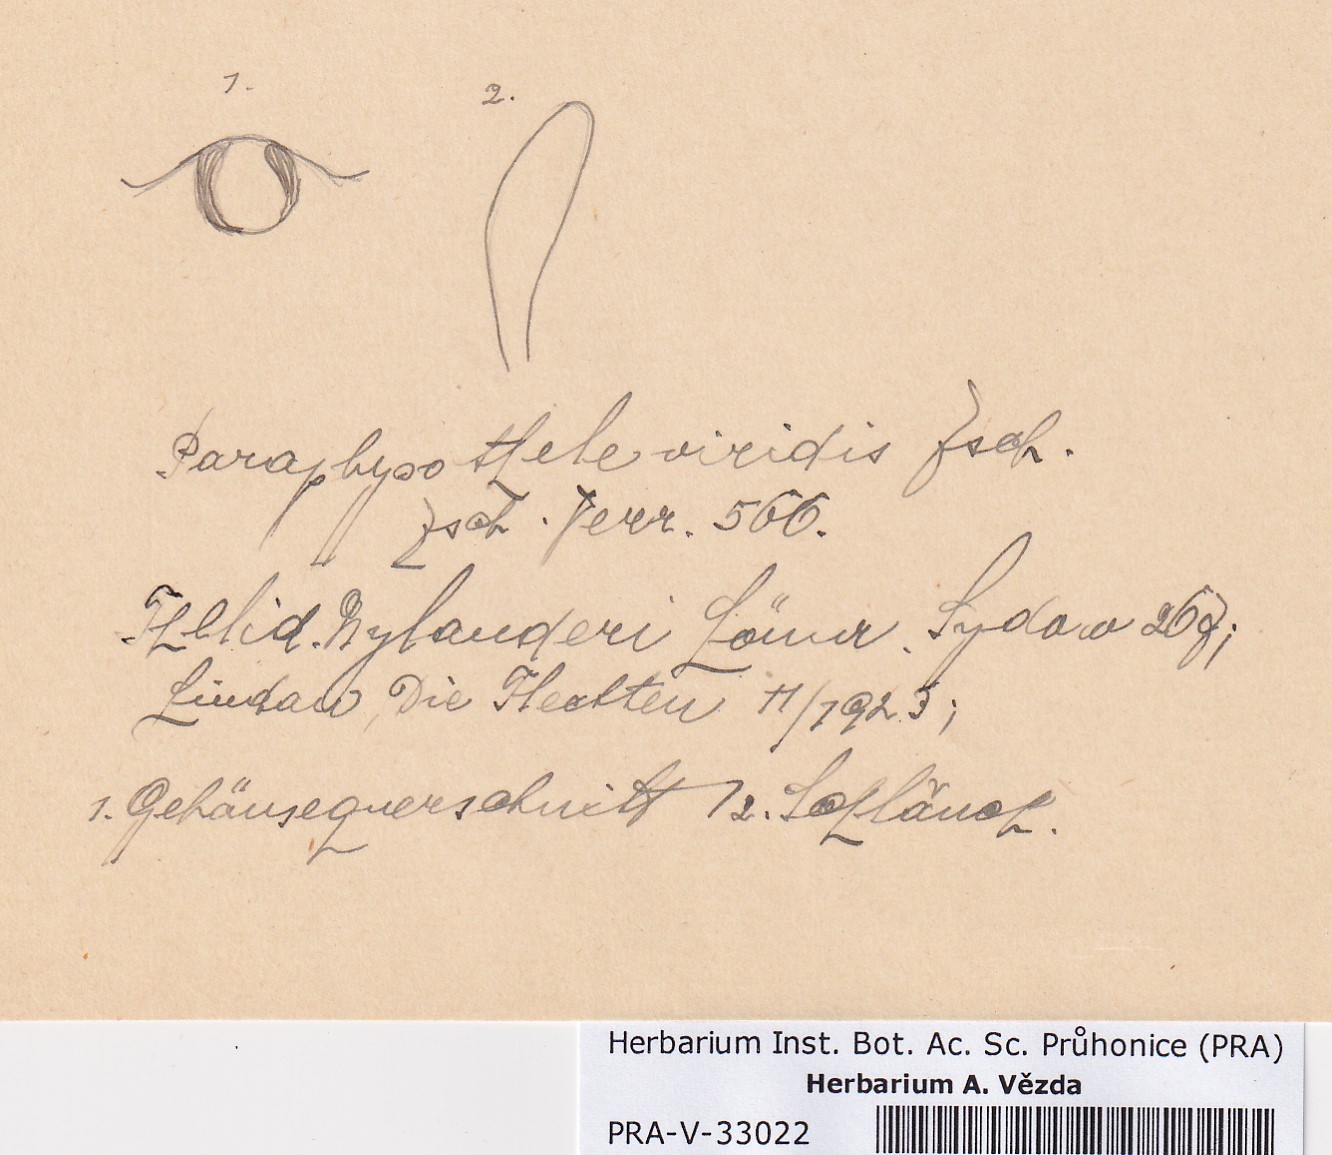 1.
2.
Paraphysothele viridis Zsch.
Zsch. Verr. 566.
Thelid. Nylanderi Lönnr. Sydow 267;
Lindau, Die Flechten 11/1923;
1. Gehäusequerschnitt /2. Schläuch.
Herbarium Inst. Bot. Ac. Sc. Průhonice (PRA)
Herbarium A. Vězda
PRA-V-33022